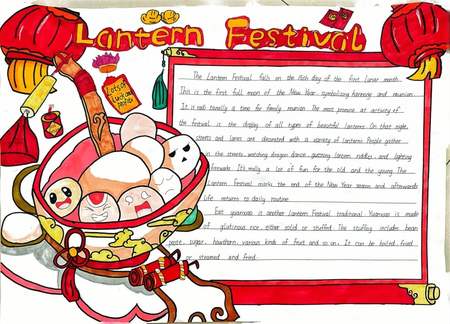 Lantern Festival
Lots of
luck and
The Lantern Festival falls on the 15th day of the first lunar month.
This is the first full moon of the New Year symbolizing harmony and reunion.
It is traditionally a time for family reunion. The most activity of
the festival is the display of all types of beautiful lanterns. On that night,
streets and lanes are decorated with a variety of lanterns. People gather
on the streets, watching dragon dance, guessing lantern riddles and lighting
fireworks. It's really a lot of fun for the old and the young. The
Lantern Festival marks the end of the New Year season and afterwards
life returns to daily routine.
Eat yuanxiao is another Lantern Festival traditional. Yuanxiao is made
of glutinous rice, either solid or stuffed. The stuffing includes bean
paste, sugar, hawthorn, various kinds of fruit and so on. It can be boiled, fried
or steamed and fried.